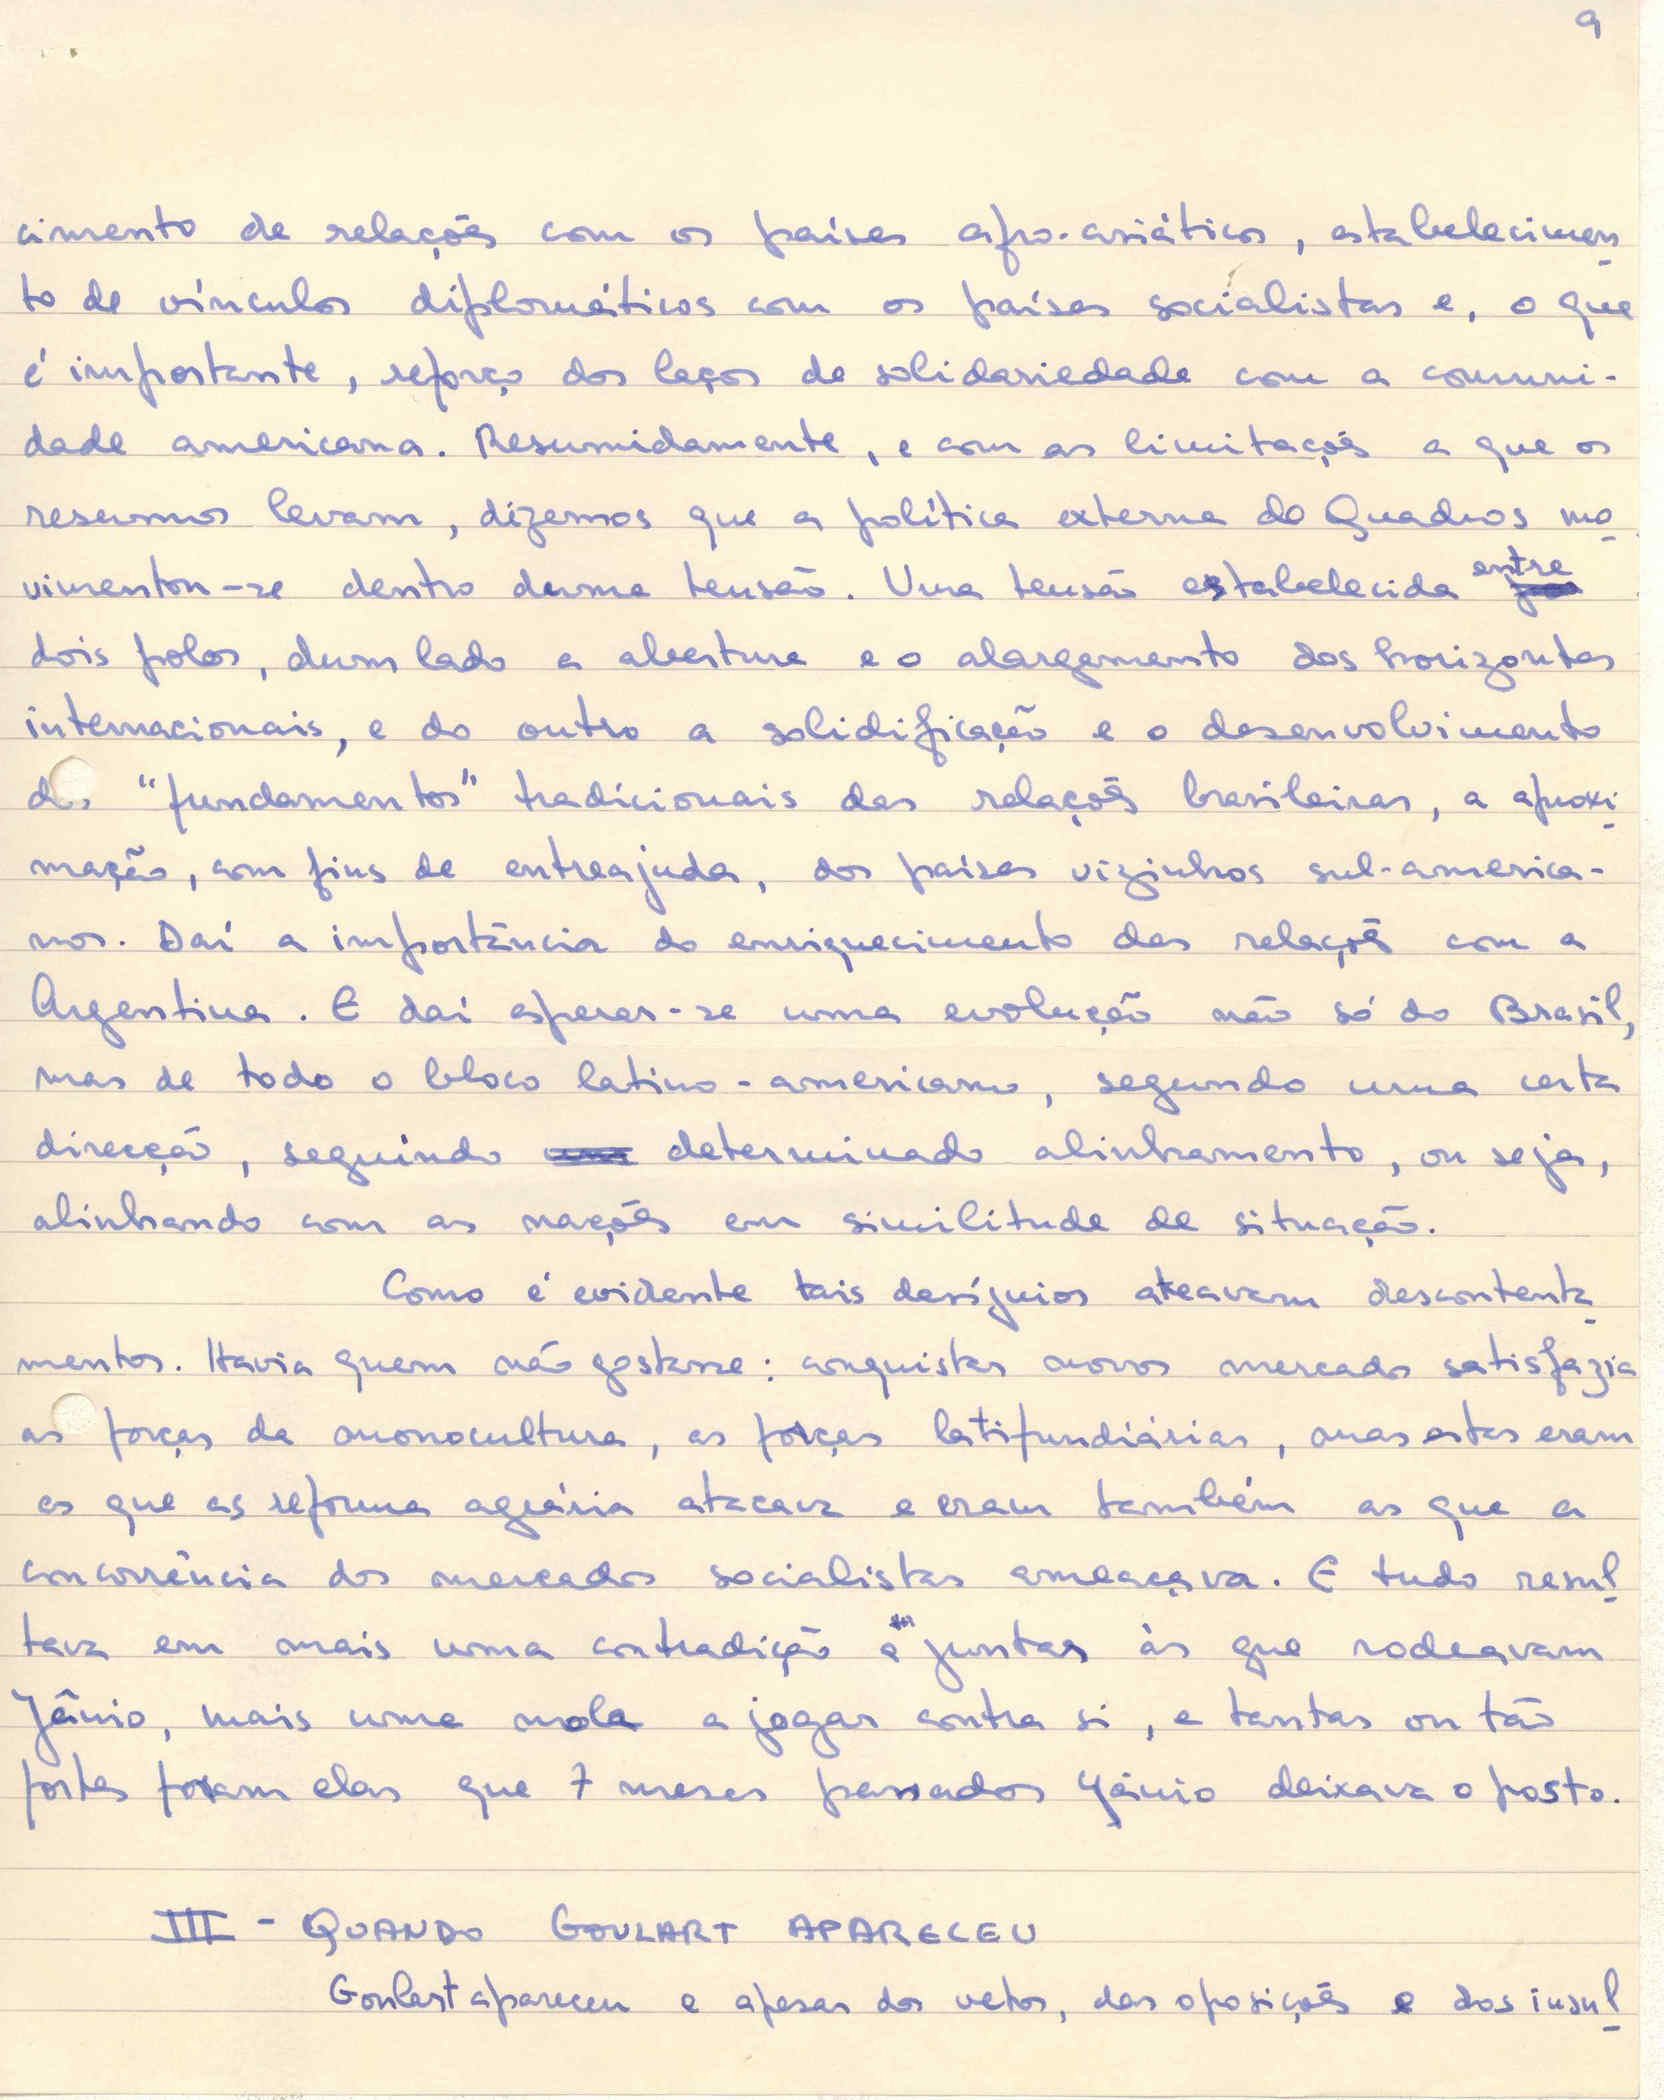 9
cimento de relações com os países afro-asiáticos, estabelecimen
to de vínculos diplomáticos com os países socialistas e, o que
é importante, reforço dos laços de solidariedade com a comuni-
dade americana. Resumidamente, e com as limitações a que os
resumos levam, dizemos que a política externa de Quadros mo
vimentou-se dentro duma tensão. Uma tensão estabelecida entre
dois polos, dum lado a abertura e o alargamento dos horizontes
internacionais, e do outro a solidificação e o desenvolvimento
dos "fundamentos" tradicionais das relações brasileiras, a aproxi
mação, com fins de entreajuda, dos países vizinhos sul-america-
nos. Daí a importância do enriquecimento das relações com a
Argentina. E daí esperar-se uma evolução não só do Brasil,
mas de todo o bloco latino-americano, segundo uma certa
direcção, seguindo determinado alinhamento, ou seja,
alinhando com as nações em similitude de situação.
Como é evidente tais desígnios ateavam descontenta
mentos. Havia quem não gostasse: conquistar novos mercados satisfazia
as forças da monocultura, as forças latifundiárias, mas estas eram
as que as reforma agrária atacava e eram também as que a
concorrência dos mercados socialistas ameaçava. E tudo resul
tava em mais uma contradição a juntar às que rodeavam
Jânio, mais uma mola a jogar contra si, e tantas ou tão
fortes foram elas que 7 meses passados Jânio deixava o posto.
III - QUANDO GOULART APARECEU
Goulart apareceu e apesar dos vetos, das oposições e dos insul